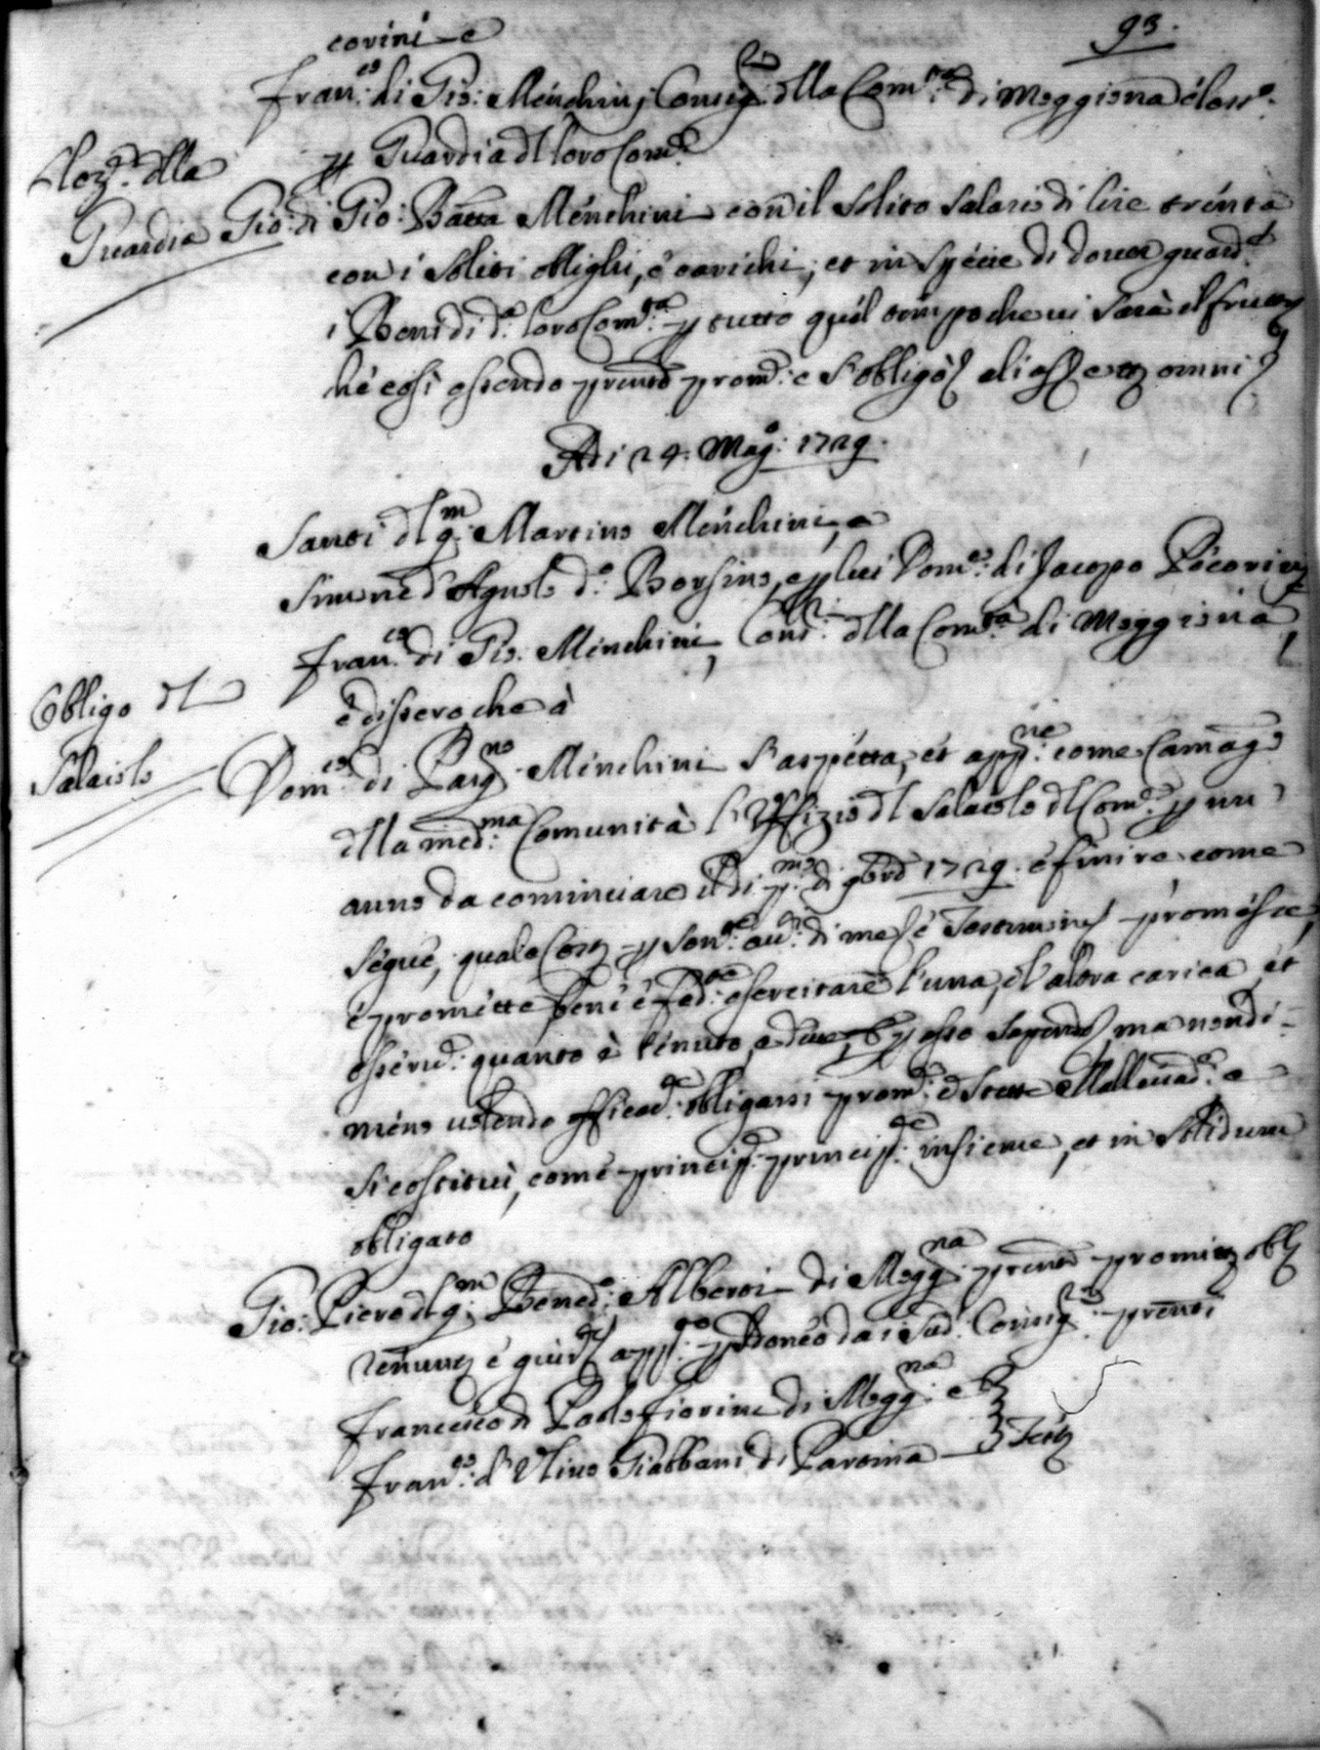 93.
corini e
Fran:co di Gio: Menchini Consig:ri dlla Com:tà di Moggiona eless:o
Eloz:e dlla
p Guardia dl loro Com:e
Guardia
Gio: di Gio: Batta Menchini con il solito salario di lire trenta
con i soliti oblighi, e carichi, et in specie di dover guard:e
i Beni di d:a loro Com:tà p tutto quel tempo che vi sarà il frutto
che così essendo prente prom: e s'obligò omni
Adi 24. Mag:o 1729.
Santi dl q:m Martino Menchini, e
Simone d'Agnolo d:o Borsino, e p lui Dom:co di Jacopo Pecorini
Fran:co di Gio. Menchini, Cons:ri dlla Com:tà di Moggiona,
Obligo dl
e dissero che à
Salaiolo
Dom:co di Parg:no Menchini s'aspetta, et app:ne come Camarg:o
dlla med:ma Comunità l'Offizio dl Salaiolo dl Com:e p un
anno da cominciare il dì p:mo di 9bre 1729. e finire come
segue, quale Cost p son: au: di me e Testimoni promesse,
e promette bene e fed:te esercitare l'una, e l'altra carica, et
osserv:e quanto è tenuto, e deve, p esso sapendo, ma nondi=
meno volendo efficac:te obligarsi prom: e stette Mallevad:e e
si costituì, come princip:e princip:te insieme, et in solidum
obligato
Gio: Piero dl q:m Bened:o Alberti di Mogg:na prente promitt obb
renunz e giur app:to p Idoneo da i sud: Consig:ri prenti
Francesco di Paolo Fiorini di Mogg:na e
Fran:co d'Ulivo Giabbani di Partina Testi